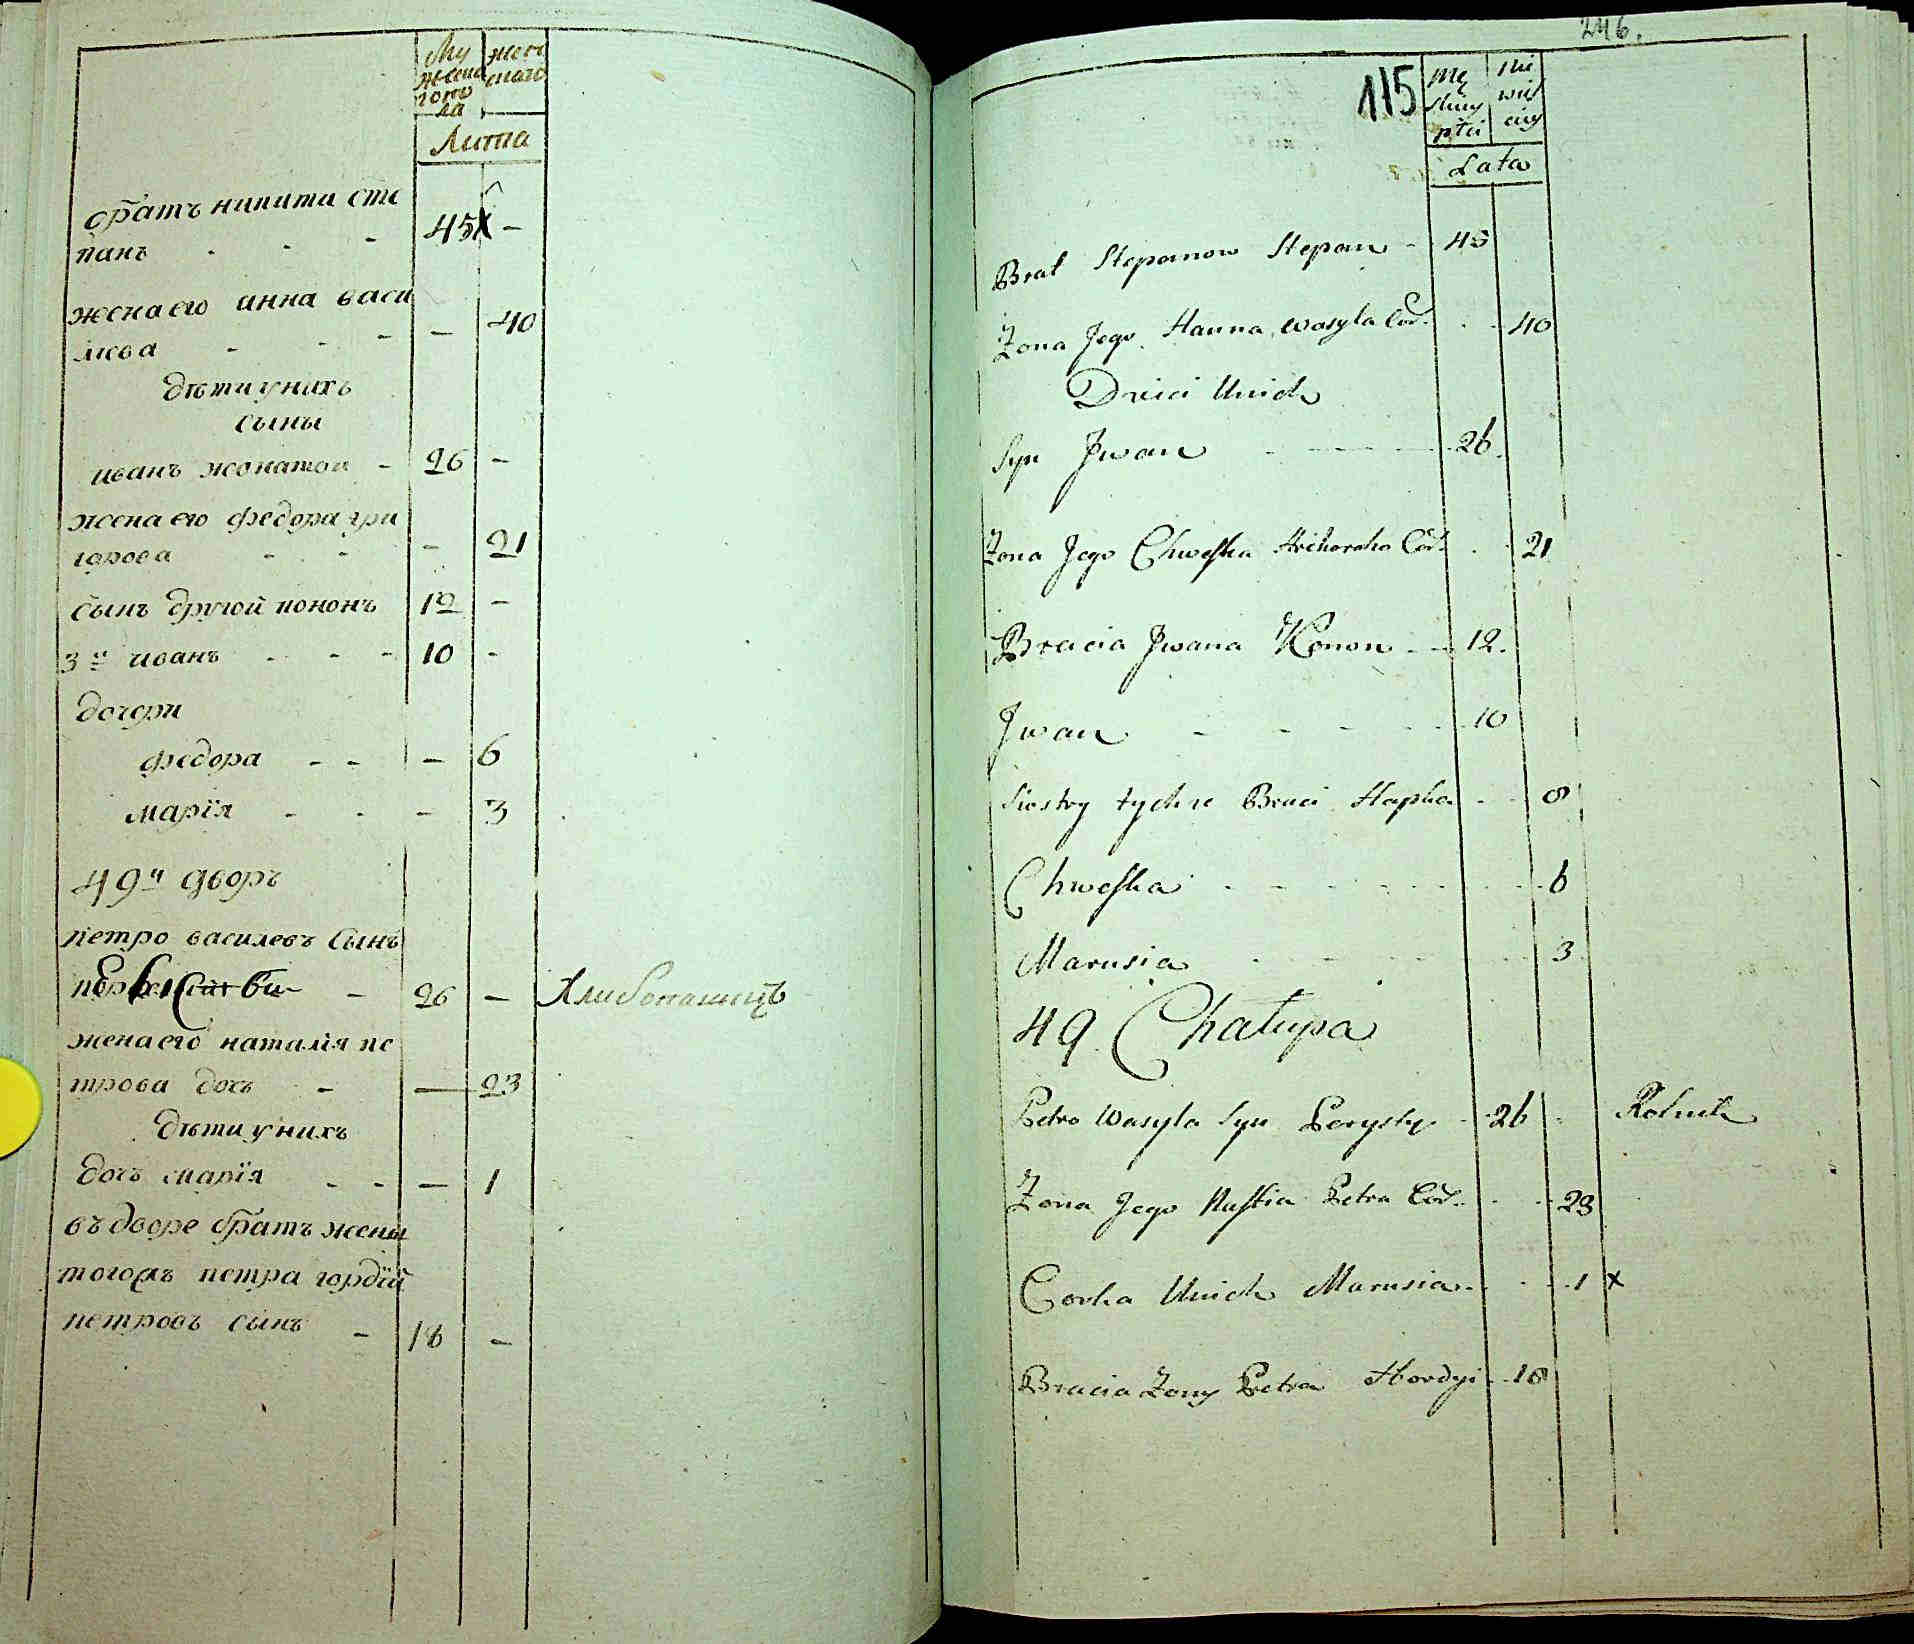 Му
жеска
полу
ла
жен
скаго
Лита
братъ никити сте
панъ - - - 45 -
жена его анна васи
лева - - - - 40
дѣти у нихъ
сыны
иванъ жонатой - 26 -
жена его федора гри
горова - - - 21
сынъ другой кононъ 12 -
3й иванъ - - - 10 -
дочери
федора - - - 6
марїя - - - 3
49й дворъ
петро василевъ сынъ
- 26 - Хлибопашецъ
жена его наталїя пе
трова дочь - - 23
дѣти у нихъ
дочь марїя - - - 1
въ дворе братъ жены
тогожъ петра гордїй
петровъ сынъ - 18 -
246.
115
Mę
skiey
płci
Nie
wieś
ciey
Lata
Brat Stepanow Stepan - 45
Zona Jego Hanna Wasyla Cor. - - 40
Dzieci Unich
Syn Jwan - - - - 26.
Zona Jego Chweska Hrihorcha Cor. - - 21
Bracia Jwana Konon - - 12.
Jwan - - - - - 10
Siostry tychze Braci Hapka - - 8
Chweska - - - - - - - 6
Marusia - - - - - - 3
49 Chałupa
Petro Wasyla Syn Perysty - 26 - Rolnik
Zona Jego Nastia Petra Cor. - - 23
Corka Unich Marusia - - - 1 x
Bracia Zony Petra Hordyi - 18